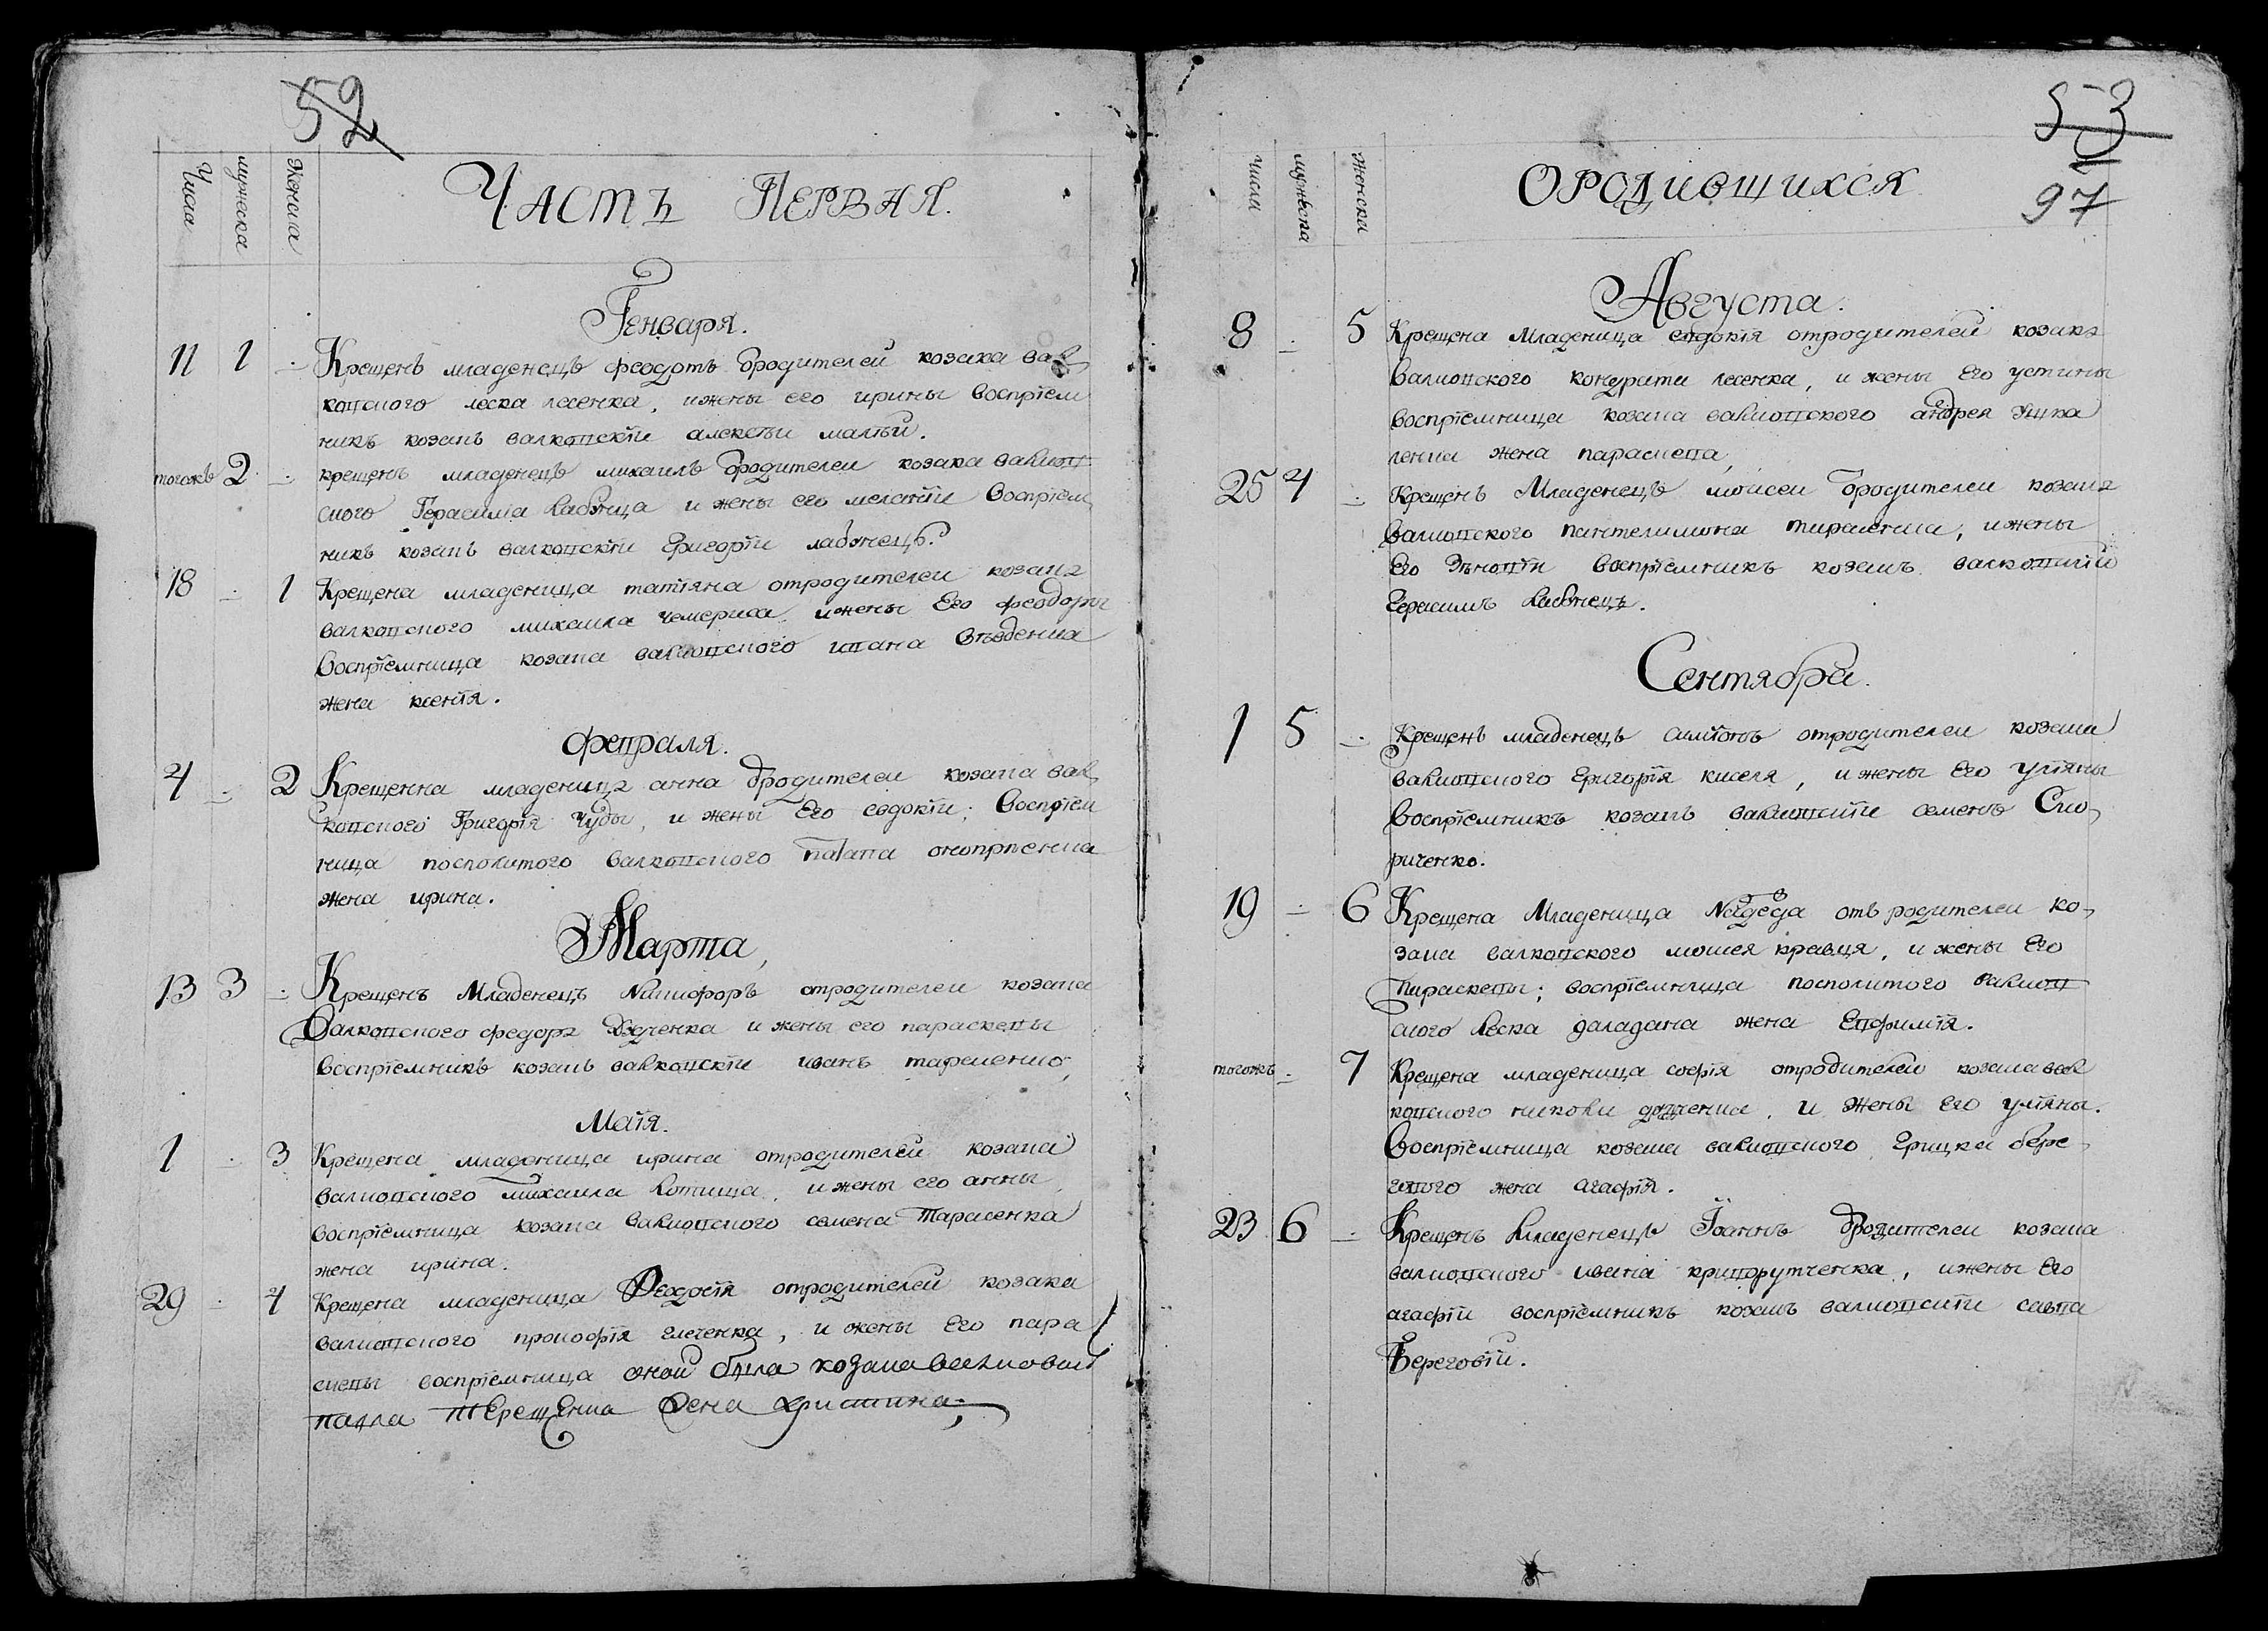 52
Числа мужеска женска
ЧАСТЬ ПЕРВАЯ.
Генваря.
11 1 Крещенъ младенецъ феодотъ ѿродителей козака вал
ковского леска лесенка, ижены его ирины восприем
никъ козакъ валковскїи алексѣи малѣи.
тогожъ 2 крещенъ младенецъ михаилъ ѿродителеи козака валков
ского Герасима Лабзнца и жены его меланїи восприем
никъ козакъ валковскїи Григорїи лабзнецъ.
18 1 Крещена младеница татїяна отродителеи козака
валковского михаила чемериса ижены Его феодоры
восприемница козака валковского ивана
жена ксенїя.
февраля.
4 2 Крещенна младеница анна ѿродителеи козака вал
ковского Григорїя Чубы, и жены Его евдокїи; воспрїем
ница посполитого валковского онопрїенка
жена ирина.
Марта,
13 3 Крещенъ Младенецъ Никифоръ отродителеи козака
Валковского федора и жены его параскевы
воспрїемникъ козакъ валковскїи иванъ
Маїя.
1 3 Крещена младеница ирина отродителей козака
валковского михаила Котица, ижены его анны,
воспрїемница козака валковского семена Тарасенка
жена ирина.
29 4 Крещена младеница Феодосїя отродителей козака
валковского прокофїя гличенка, и жены Его пара
скевы воспрїемница оной была козака валковск
павла Терещенка жена христина;
53
97
числа мужеска женска
ОРОДИВШИХСЯ
Августа.
8 5 Крещена Младеница евдокїя отродителей козака
валковского кондрата лесенка, и жены Его устины
воспрїемница козака валковского андрея Яцка
ленка жена параскева,
25 4 Крещенъ Младенецъ моисеи ѿродителеи козака
валковского пантелимона тарасенка, ижены
Его воспрїемникъ козакъ валковскїй
Герасимъ Лабзнецъ.
Сентября.
1 5 Крещенъ младенецъ отродителеи козака
валковского Григорїя киселя, и жены Его улїяны
Воспрїемникъ козакъ валковскїи семенъ Ско
риченко.
19 6 Крещена Младеница Надежда отъ родителеи ко
зака валковского моисея кравця, и жены Его
Параскевы; воспрїемница посполитого валков
ского Леска даладана жена Евфимїя.
тогожъ 7 Крещена младеница софїя отродителей козака вал
ковского николи дядченка, и жены Его улїяны.
Воспрїемница козака валковского Грицка бере
гового жена агафїя.
23 6 Крещенъ Младенецъ Їоаннъ ѿродителеи козака
валковского ивана криворутченка, ижены Его
агафїи воспрїемникъ козакъ валковскїи савва
Береговїи.